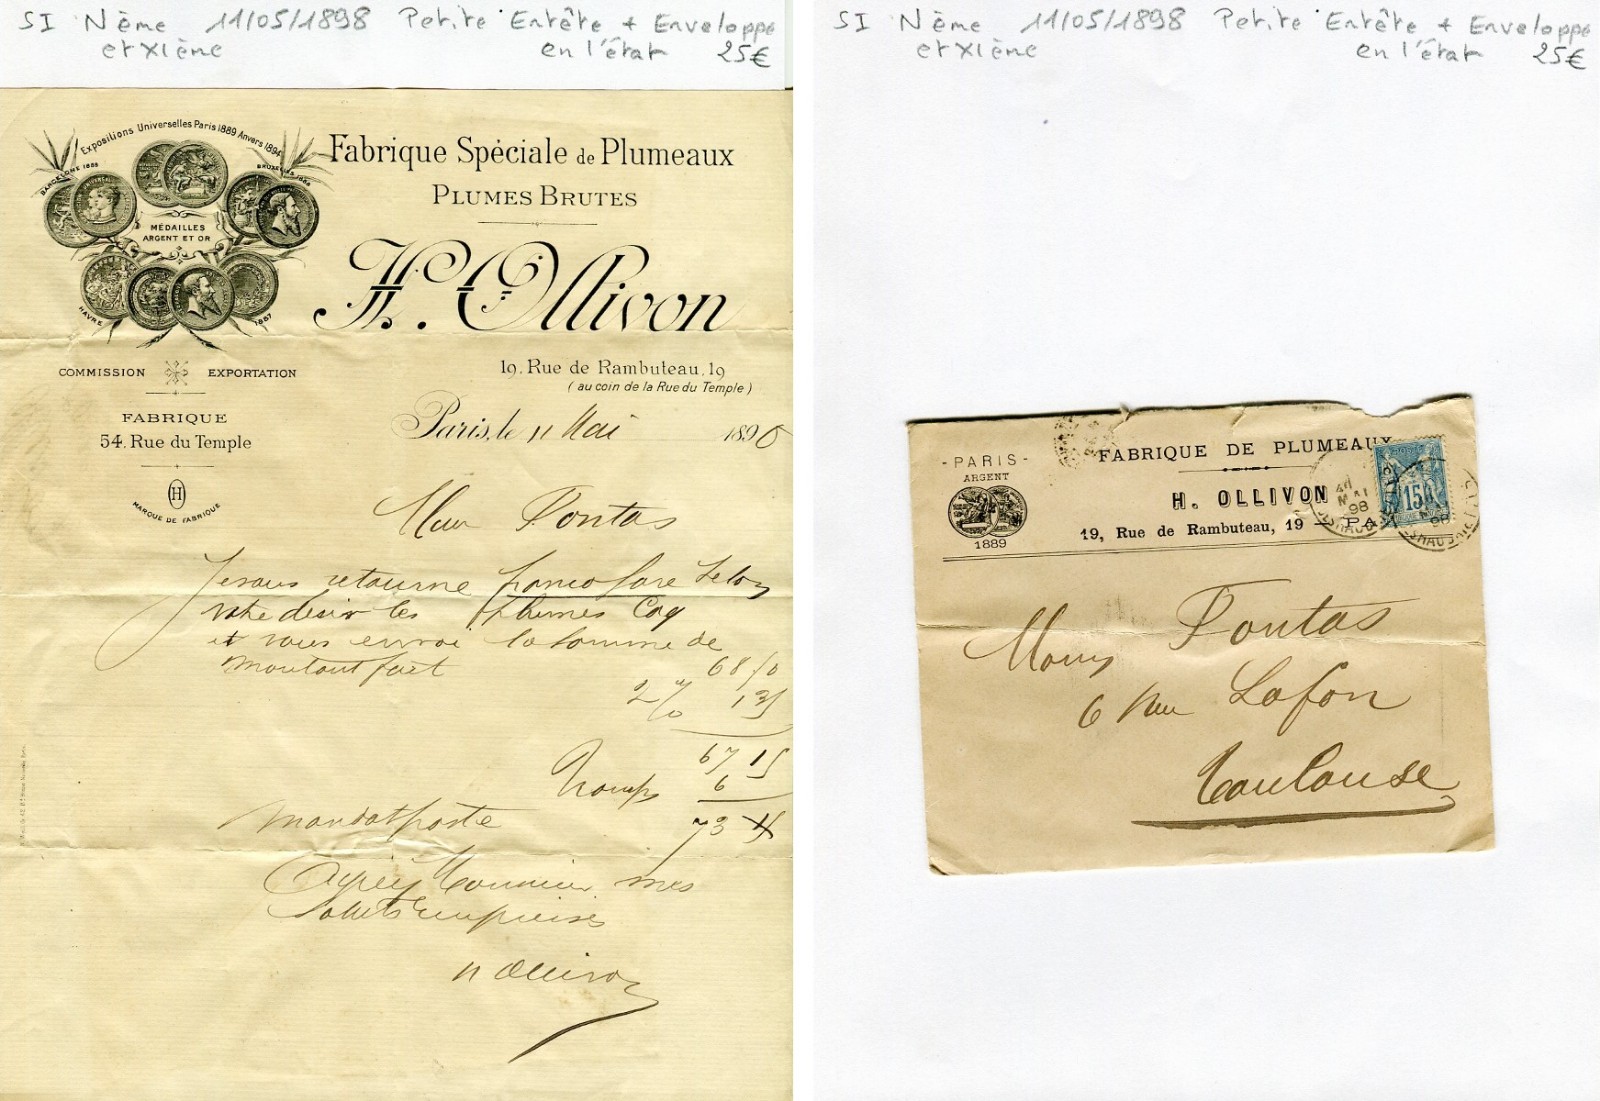 SI Nème 11/05/1898 Petite Entête + Enveloppe
et XIème en l'état 25€
Expositions Universelles Paris 1889 Anvers 1894
BARCELONE 1888
BRUXELLES 1888
MÉDAILLES
ARGENT ET OR
HAVRE
1887
Fabrique Spéciale de Plumeaux
PLUMES BRUTES
H. Ollivon
COMMISSION EXPORTATION
19, Rue de Rambuteau, 19
(au coin de la Rue du Temple)
FABRIQUE
54, Rue du Temple
H
MARQUE DE FABRIQUE
Paris, le 11 Mai 1898
Pontas
Je vous retourne franco gare selon
votre désir les plumes Coq
et vous envoi la somme de
montant fait 68 50
2% 1 35
67 15
6
mandat poste 73
Agréez Monsieur mes
Saluts empressés
H Ollivon
SI Nème 11/05/1898 Petite Entête + Enveloppe
et XIème en l'état 25€
- PARIS -
ARGENT
1889
FABRIQUE DE PLUMEAUX
H. OLLIVON
19, Rue de Rambuteau, 19 - PA
15
MAI
98
Pontas
6 Rue Lafon
Toulouse